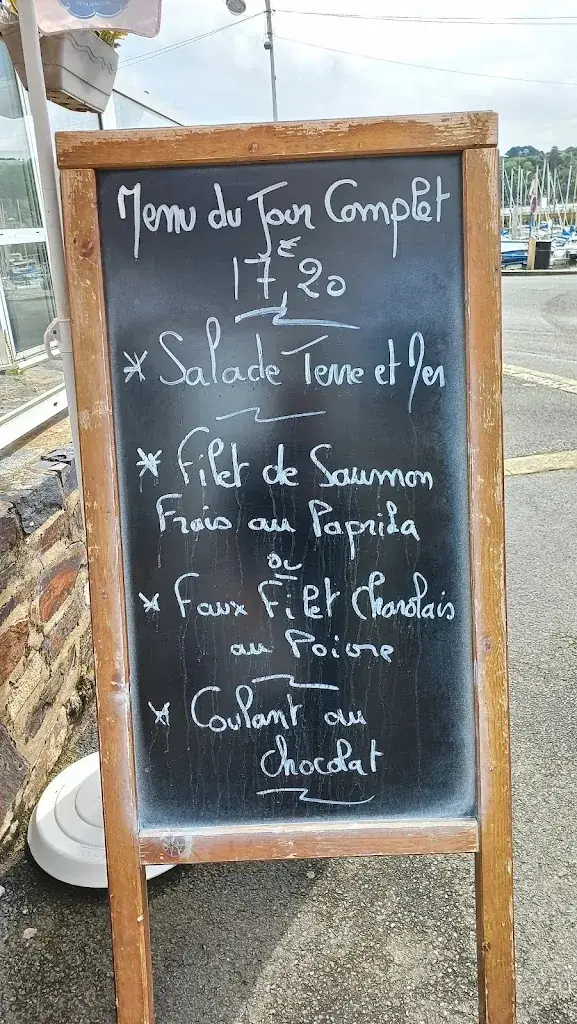 Menu du Jour Complet
17,20 €
* Salade Terre et Mer
* Filet de Saumon
Frais au Paprika
ou
* Faux Filet Charolais
au Poivre
* Coulant au
chocolat